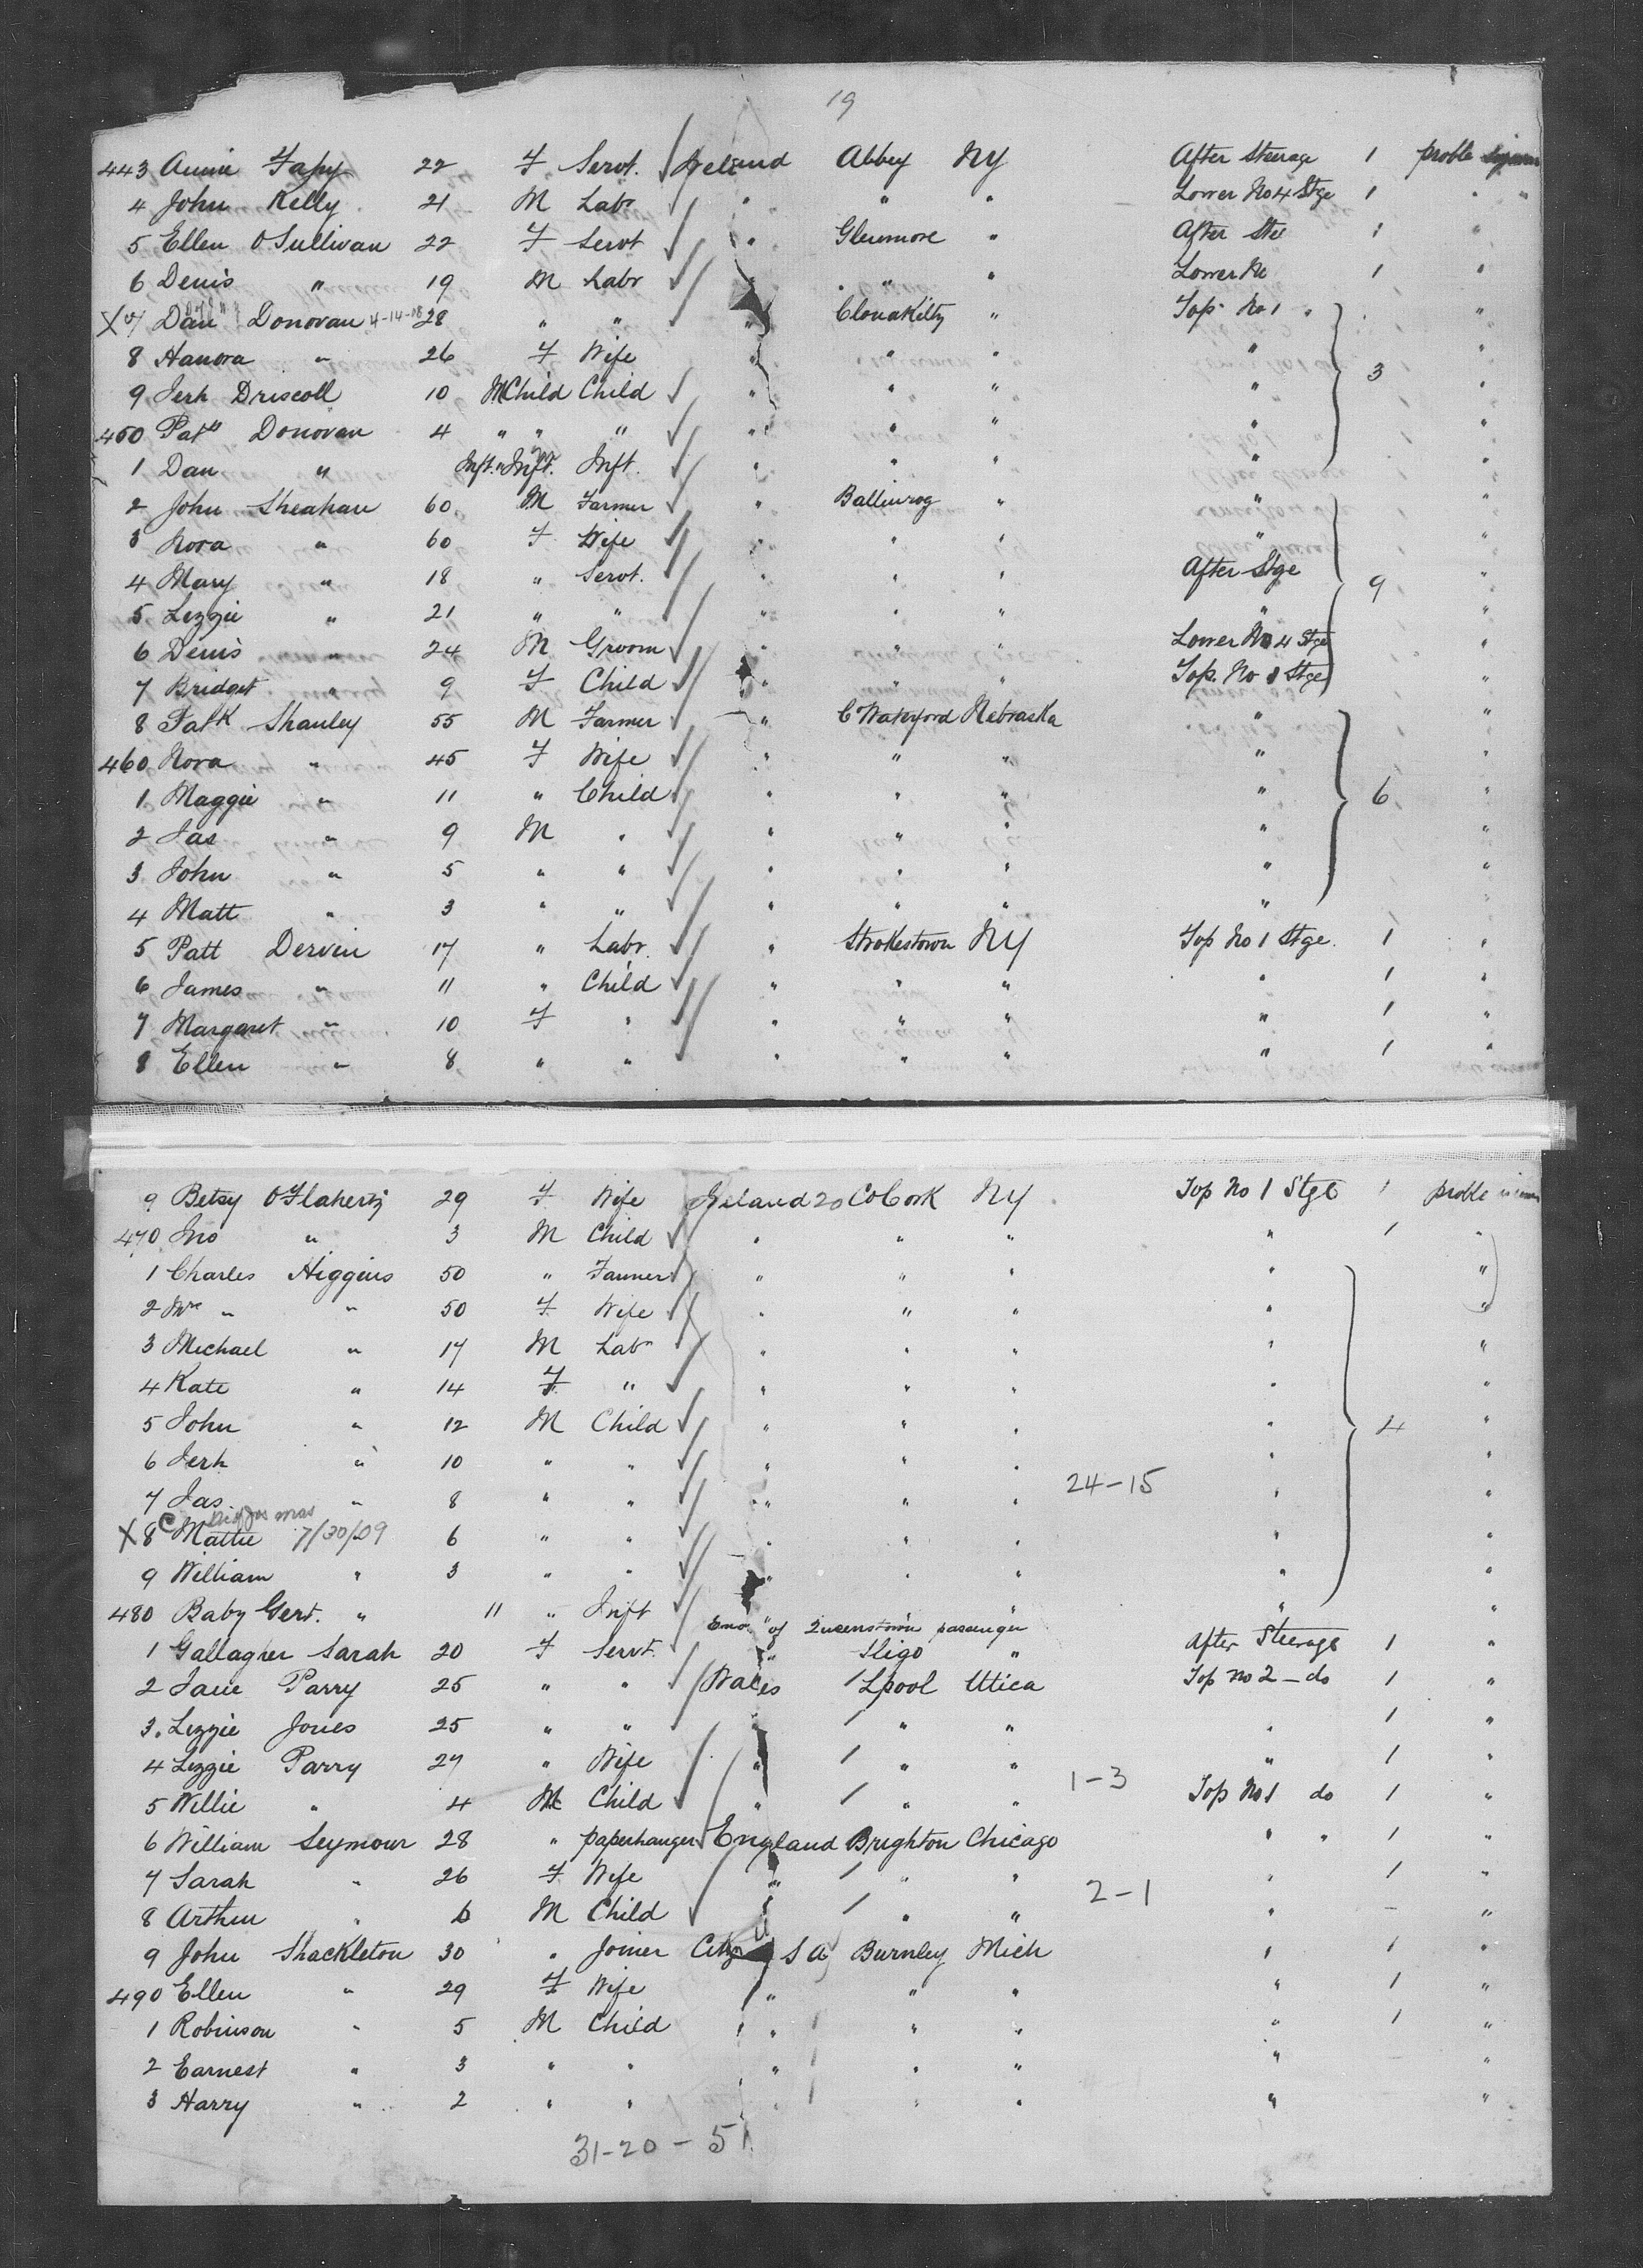 19
443 Annie Fahy 22 F Servt. Ireland Abbey NY After Steerage 1 proble
4 John Kelly 21 M Labr " " " Lower No 4 Stge 1 " "
5 Ellen O Sullivan 22 F Servt " Glenmore " After Stee 1 "
6 Denis " 19 M Labr " " " Lower No 1 "
X 7 Dan Donovan 4-14-18 28 " " " Clonakilty " Top No 1 " "
8 Hanora " 26 F Wife " " " " "
9 Jerh Driscoll 10 M Child Child " " " " 3 "
450 Patk Donovan 4 " " " " " " " "
1 Dan " Inft. " Inft. Inft. " " " " "
2 John Sheahan 60 M Farmer " Ballinrog " " "
3 Nora " 60 F Wife " " " " "
4 Mary " 18 " Servt. " " " After Stge 9 "
5 Lizzie " 21 " " " " " " "
6 Denis " 24 M Groom " " " Lower No 4 Stge "
7 Bridget " 9 F Child " " " Top No 1 Stge "
8 Patk Shanley 55 M Farmer " C Waterford Nebraska " "
460 Nora " 45 F Wife " " " " "
1 Maggie " 11 " Child " " " " 6 "
2 Jas " 9 M " " " " " "
3 John " 5 " " " " " " "
4 Matt " 3 " " " " " "
5 Patt Dervin 17 " Labr. " Strokestown NY Top No 1 Stge. 1 "
6 James " 11 " Child " " " " 1 "
7 Margaret " 10 F " " " " " 1 "
8 Ellen " 8 " " " " " " 1 "
9 Betsy O Flaherty 29 F Wife Ireland 20 Co Cork NY Top No 1 Stge 1 proble
470 Jno " 3 M Child " " " " 1 "
1 Charles Higgins 50 " Farmer " " " " "
2 Mrs " " 50 F Wife " " " " "
3 Michael " 17 M Labr " " " " "
4 Kate " 14 F " " " " " "
5 John " 12 M Child " " " " 4 "
6 Jerh " 10 " " " " " " "
7 Jas. " 8 " " " " " 24-15 " "
X 8 C Mattie 7/30/09 6 " " " " " " "
9 William " 3 " " " " " " "
480 Baby Gert. " 11 " Inft " " " "
End of Queenstown passenger
1 Gallagher Sarah 20 F Servt. " Sligo " After Steerage 1 "
2 Jane Parry 25 " " Wales Lpool Utica Top No 2 - do 1 "
3. Lizzie Jones 25 " " " " " " 1 "
4 Lizzie Parry 27 " Wife " " " " 1 "
1-3
5 Willie " 4 M Child " " " Top No 1 do 1 "
6 William Seymour 28 " paperhanger England Brighton Chicago " " 1 "
7 Sarah " 26 F Wife " " " " 1 "
2-1
8 Arthur " 6 M Child " " " " - "
9 John Shackleton 30 " Joiner S A Burnley Mich " 1 "
490 Ellen " 29 F Wife " " " " 1 "
1 Robinson " 5 M Child " " " " 1 "
2 Earnest " 3 " " " " " " "
3 Harry " 2 " " " " " " "
31-20-51